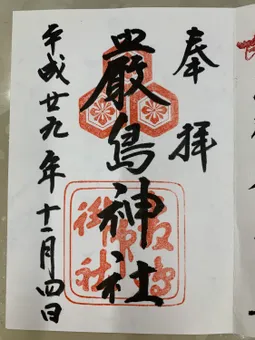 奉拝
厳島神社
平成廿九年十一月四日